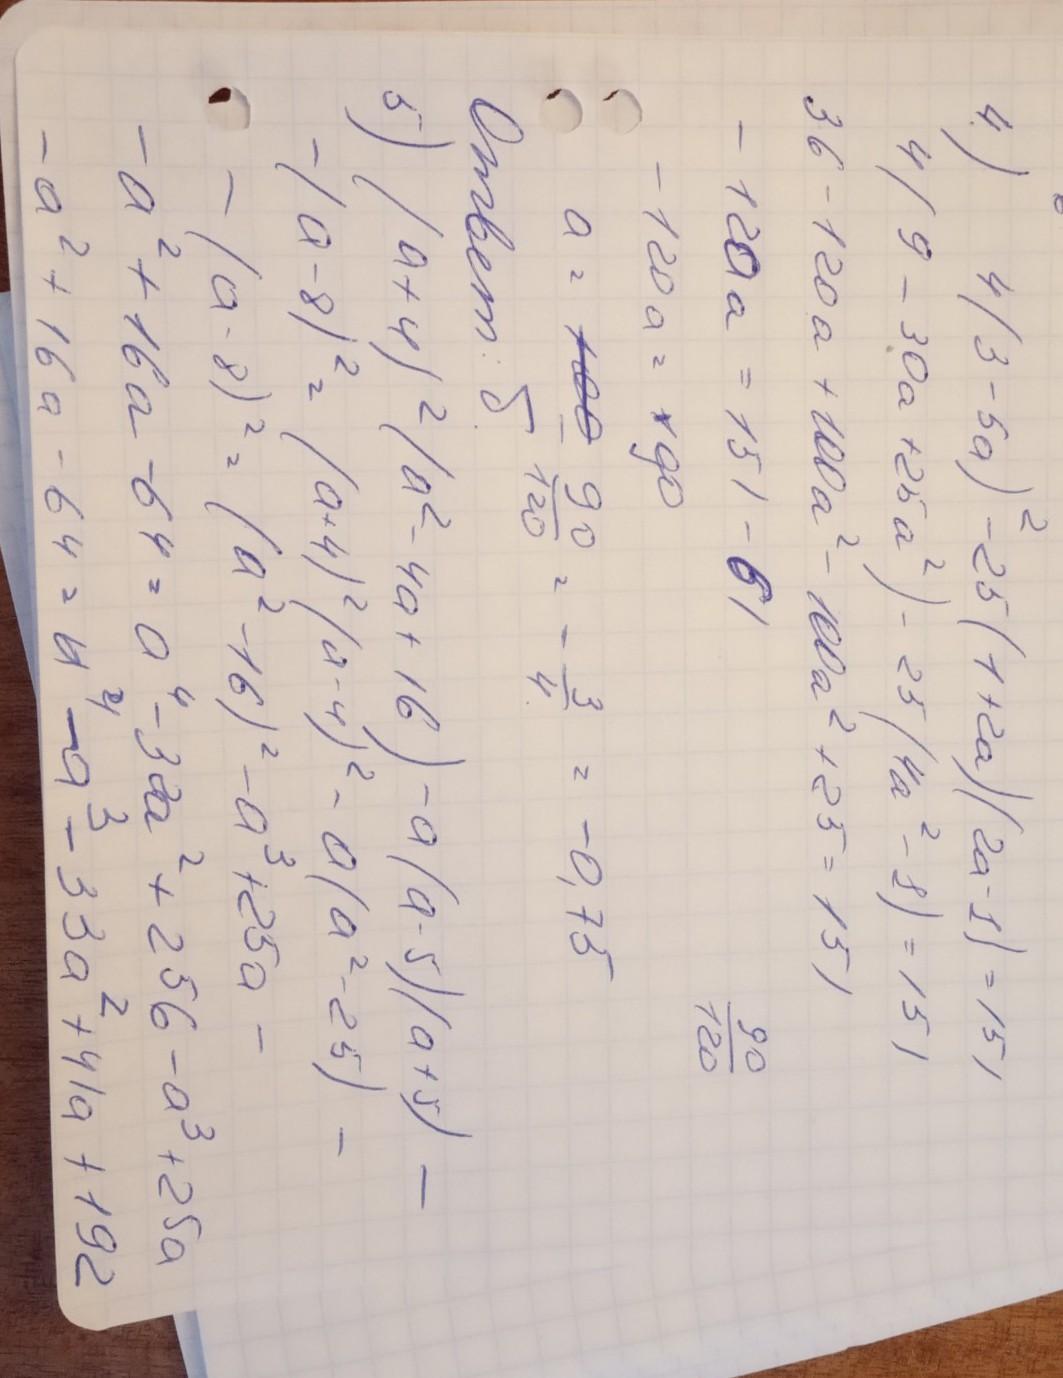 4) 4(3-5a)²-25(1+2a)(2a-1)=151
4(9-30a+25a²)-25(4a²-1)=151
36-120a+100a²-100a²+25=151
-120a=151-61
-120a=90
90/120
a=-90/120=-3/4=-0,75
Ответ: 5
5) (a+4)²(a²-4a+16)-a(a-5)(a+5)-
-(a-8)²=(a+4)²(a-4)²-a(a²-25)-
-(a-8)²=(a²-16)²-a³+25a-
-a²+16a-64=a⁴-32a²+256-a³+25a
-a²+16a-64=a⁴-a³-33a²+41a+192